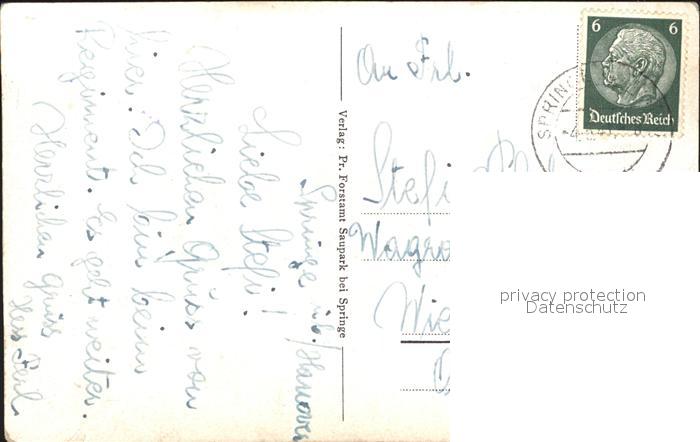 Springe üb./Hannover
Liebe Stefi!
Herzlichen Gruss von
hier. Ich bin beim
Regiment. Es geht weiter.
Herzlichen Gruss
Verlag: Pr. Forstamt Saupark bei Springe
An Frl.
Stefi
Wagra
Wie
6 6
Deutsches Reich
SPRING
privacy protection
Datenschutz